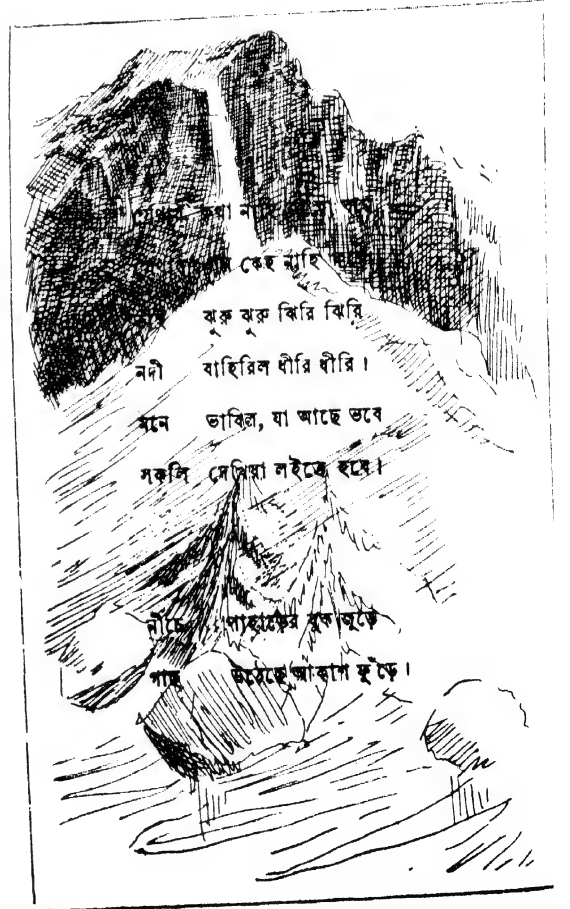 কথা
কেহ নাহি
ঝুরু ঝুরু ঝিরি ঝিরি
নদী বাহিরিল ধীরি ধীরি।
মনে ভাবিল, যা আছে ভবে
সকলি দেখিয়া লইতে হবে।
নীচে পাহাড়ের বুক জুড়ে
গাছ উঠেছে আকাশ ফুঁড়ে।